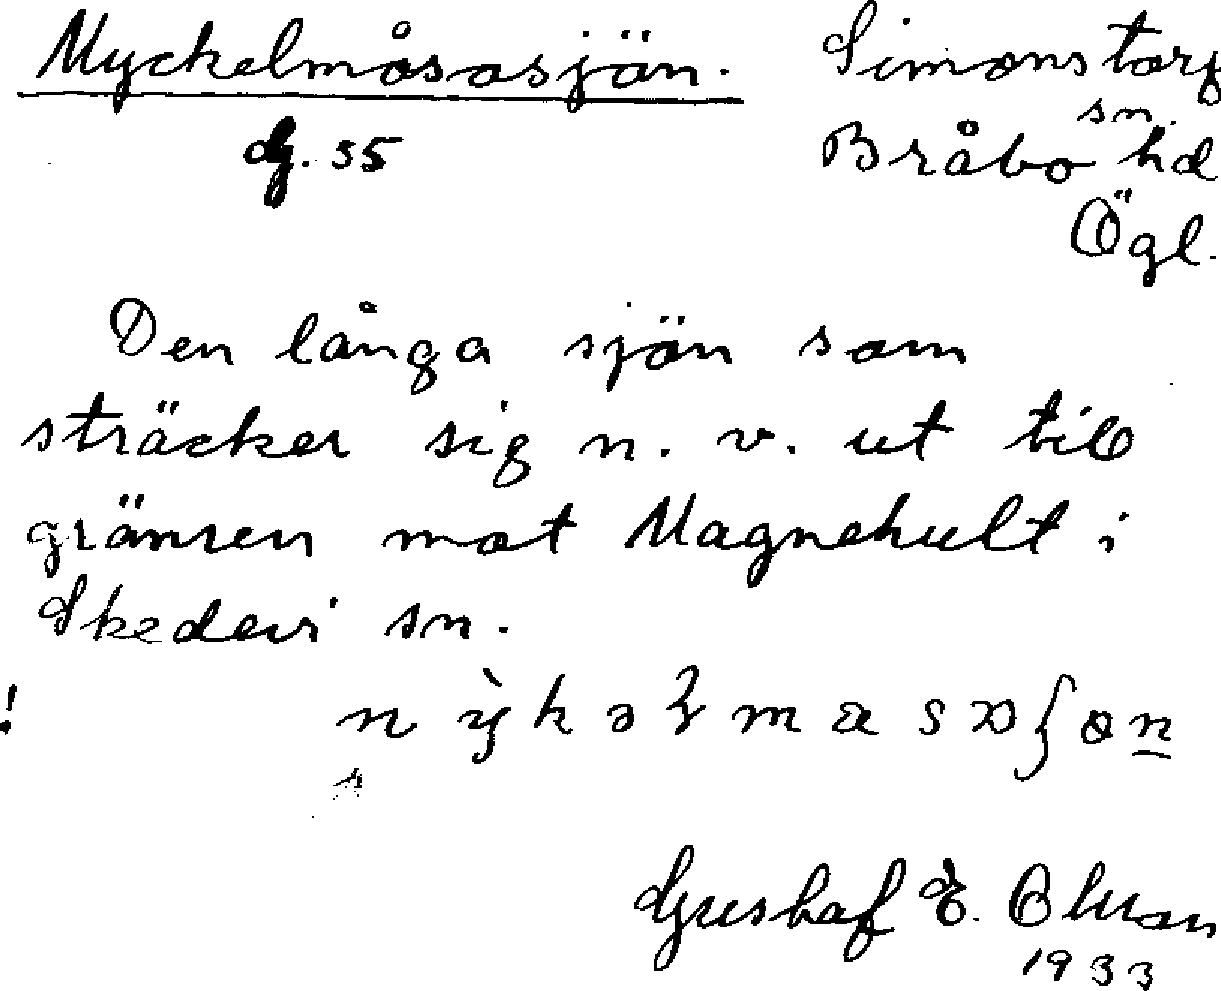 Myckelmåsasjön. Simonstorp
sn.
G. 55 Bråbo hd
Ögl.
Den långa sjön som
sträcker sig n. v. ut till
gränsen mot Magnehult i
Skedevi sn.
!
Gustaf E. Ohlson
1933